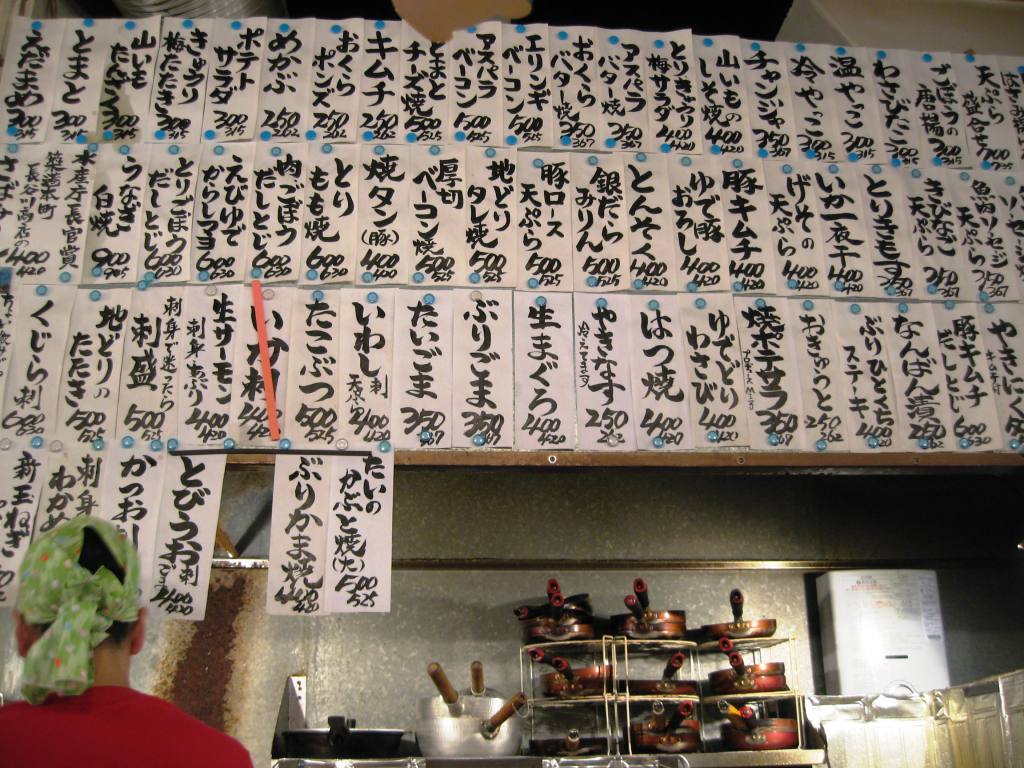 えだまめ 300 315
とまと 300 315
山いもたんざく 300 315
きゅうり梅たたき 300 315
ポテトサラダ 300 315
めかぶ 250 262
おくらポンズ 250 262
キムチ 250 262
とまとチーズ焼 500 525
アスパラベーコン 500 525
エリンギベーコン 500 525
おくらバター焼 350 367
アスパラバター焼 350 367
とりきゅうり梅サラダ 400 420
山いものしそ焼 400 420
チャンジャ 350 367
冷やっこ 300 315
温やっこ 300 315
わさびたこ
ごぼうの唐揚
天ぷら盛合せ 700
水産庁長官賞
築地本町
長谷川商店の
400 420
うなぎ白焼 900 905
とりごぼうだしとじ 600 630
えびゆでからしマヨ 600 630
肉ごぼうだしとじ 600 630
とりもも焼 600 630
焼タン(豚) 400 420
厚切ベーコン焼 500 525
地どりタレ焼 500 525
豚ロース天ぷら 500 525
銀だらみりん 500 525
とんそく 400 420
ゆで豚おろし 400 420
豚キムチ 400 420
げその天ぷら 400 420
いか一夜干 400 420
とりきもす 350 367
きびなご天ぷら 350 367
魚肉ソーセージ天ぷら 350 367
くじら刺 600 630
地どりのたたき 500 525
刺身で迷ったら刺盛 500 525
生サーモン刺身・あぶり 400 420
いか刺 400 420
たこぶつ 500 525
いわし刺 天ぷら 400 420
たいごま 350 367
ぶりごま 350 367
生まぐろ 400 420
やきなす 冷えてます 250 262
はつ焼 400 420
ゆでどりわさび 400 420
焼ポテサラ 350 367
おきゅうと 250 262
ぶりひとくちステーキ 400 420
なんばん漬 250 262
豚キムチだしとじ 600 630
新玉ねぎ
刺身わかめ
かつお
とびうお刺 ごま 400 420
ぶりかま焼 400 420
たいのかぶと焼(大) 500 525